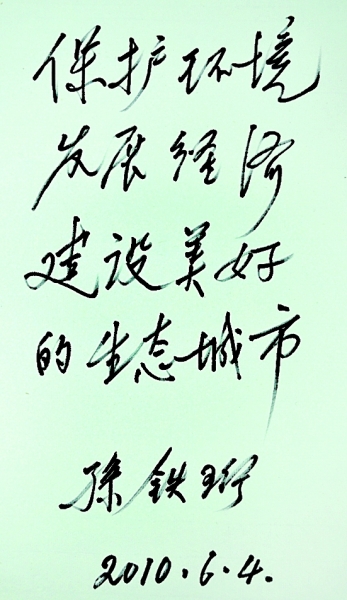 保护环境
发展经济
建设美好
的生态城市
孙铁珩
2010.6.4.